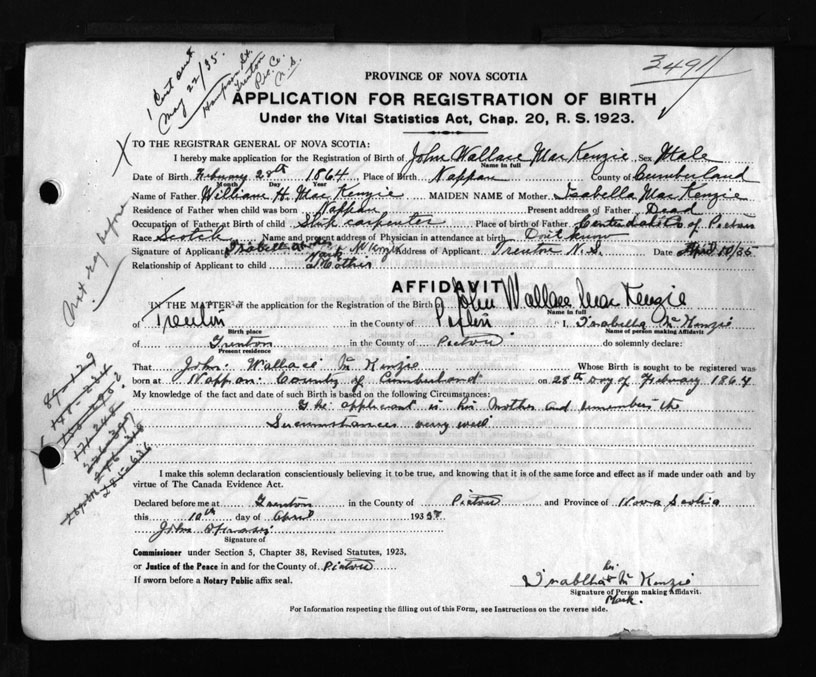 1 Cert sent
May 22/35.
Hampson St.
Trenton
Pic. Co.
N. S.
3491
PROVINCE OF NOVA SCOTIA
APPLICATION FOR REGISTRATION OF BIRTH
Under the Vital Statistics Act, Chap. 20, R. S. 1923.
X TO THE REGISTRAR GENERAL OF NOVA SCOTIA:
I hereby make application for the Registration of Birth of John Wallace MacKenzie Sex Male
Name in full
Date of Birth February 28th 1864 Place of Birth Nappan County of Cumberland
Month Day Year
Name of Father William H. MacKenzie MAIDEN NAME of Mother Isabella MacKenzie
Residence of Father when child was born Nappan Present address of Father Dead
Occupation of Father at Birth of child Ship carpenter Place of birth of Father of Pictou
Race Scotch Name and present address of Physician in attendance at birth Don't know
Signature of Applicant Address of Applicant Trenton N. S. Date April 10/35
Mark
Relationship of Applicant to child Mother
Not reg before
AFFIDAVIT
IN THE MATTER of the application for the Registration of the Birth of John Wallace MacKenzie
Name in full
of Trenton in the County of Pictou I, Isabella McKenzie
Birth place Name of person making Affidavit
of Trenton in the County of Pictou do solemnly declare:
Present residence
That John Wallace McKenzie Whose Birth is sought to be registered was
born at Nappan County of Cumberland on 28th Day of February 1864
My knowledge of the fact and date of such Birth is based on the following Circumstances:
The applicant is his Mother and remembers the
Sircumstances very well
I make this solemn declaration conscientiously believing it to be true, and knowing that it is of the same force and effect as if made under oath and by
virtue of The Canada Evidence Act.
Declared before me at Trenton in the County of Pictou and Province of Nova Scotia
this 10th day of April 1935
John
Signature of
Commissioner under Section 5, Chapter 38, Revised Statutes, 1923,
or Justice of the Peace in and for the County of Pictou
If sworn before a Notary Public affix seal.
his
Isablha X McKenzie
Signature of Person making Affidavit.
Mark.
For Information respecting the filling out of this Form, see Instructions on the reverse side.